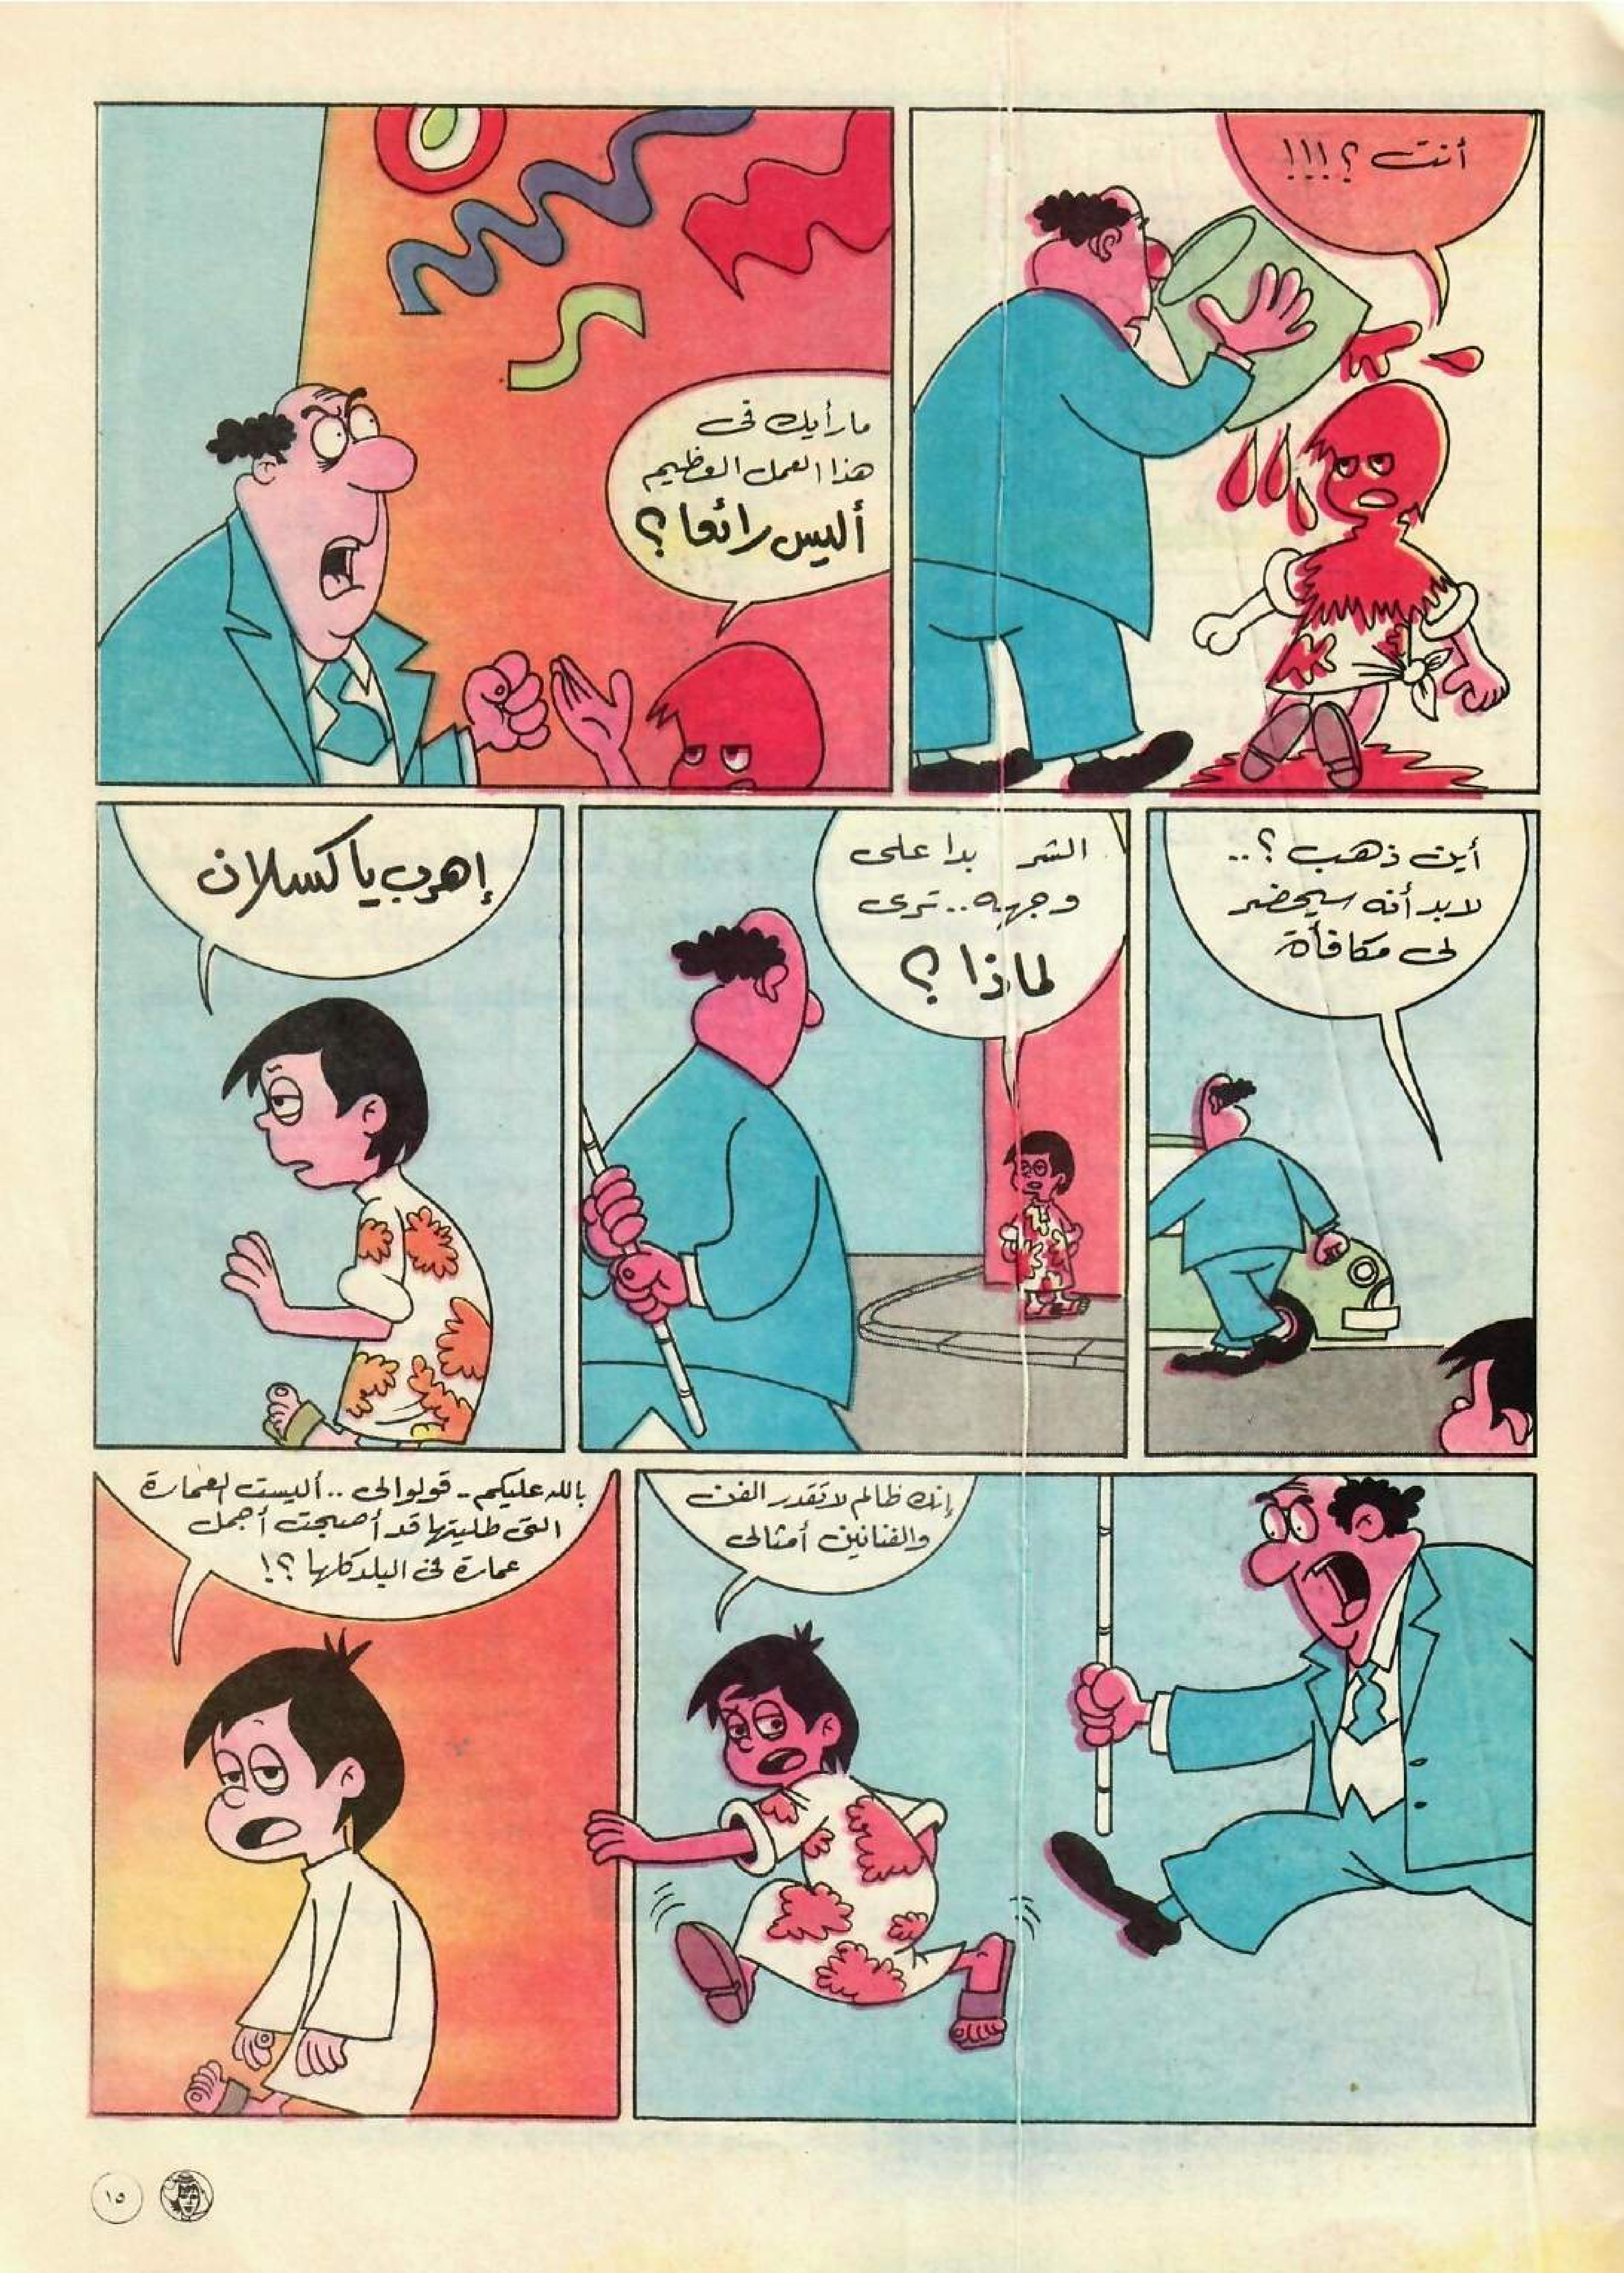 أنت ؟!!!
ما رأيك فى
هذا العمل العظيم
أليس رائعا ؟
أين ذهب ؟..
لابد أنه سيحضر
لى مكافأة
الشر بدا على
وجهه.. ترى
لماذا ؟
إهرب يا كسلان
إنك ظالم لا تقدر الفن
والفنانين أمثالى
بالله عليكم - قولوا لى .. أليست العمارة
التى طليتها قد أصبحت أجمل
عمارة فى البلد كلها ؟!
١٥